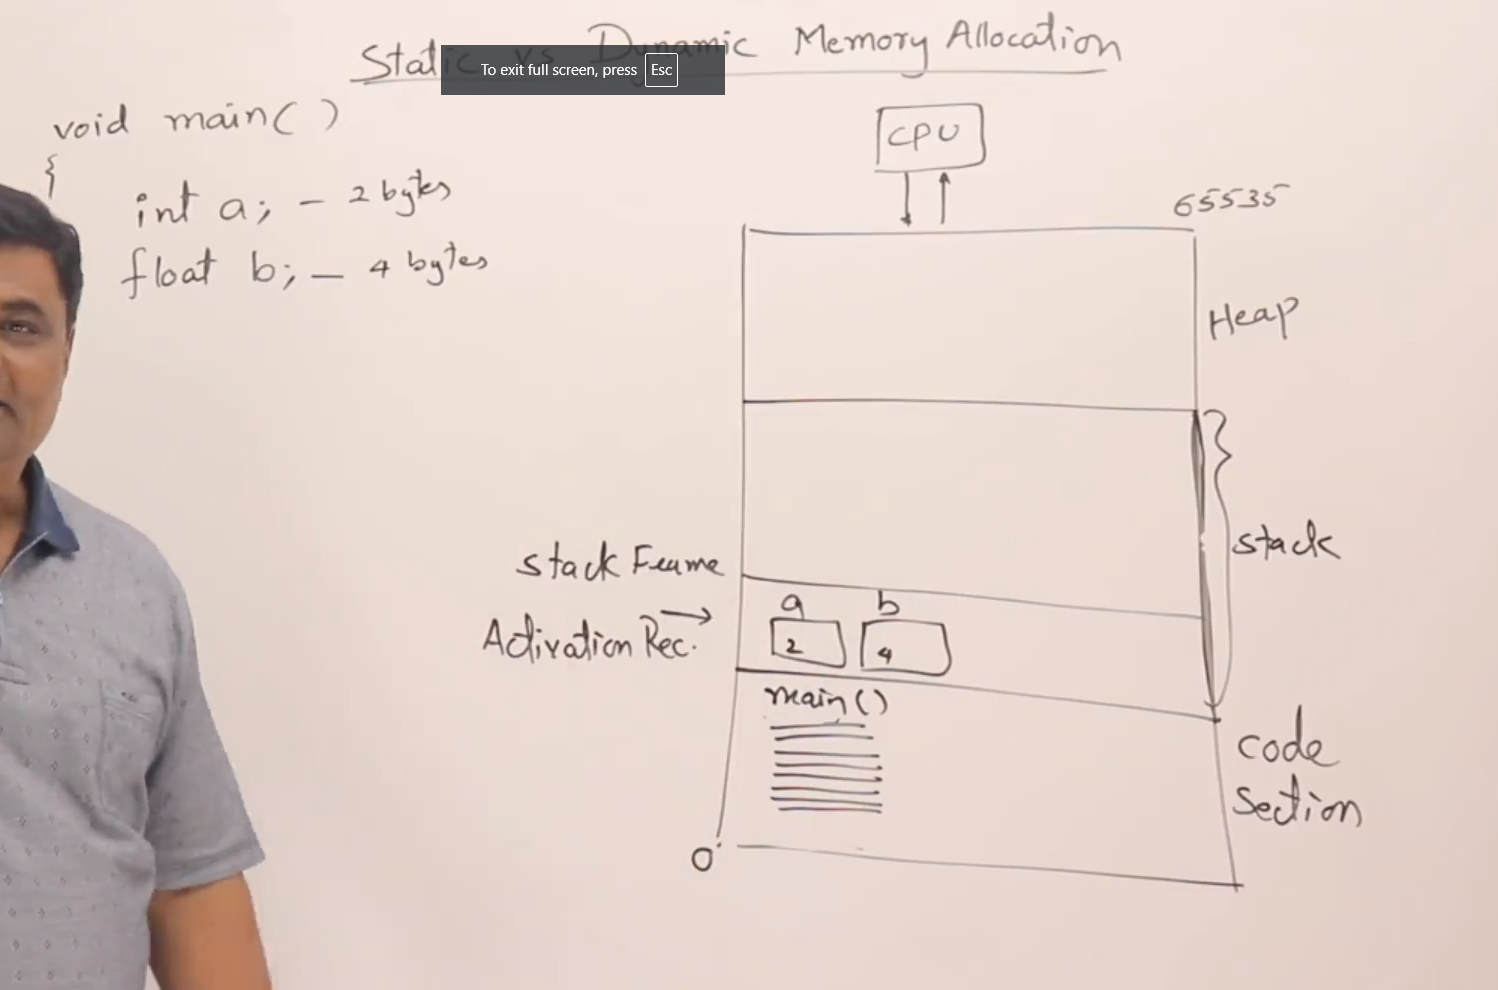 Static vs Dynamic Memory Allocation
To exit full screen, press Esc
void main( )
{
int a; - 2 bytes
float b; - 4 bytes
CPU
65535
Heap
stack
stack Frame
Activation Rec.
a b
2 4
main()
code
section
0